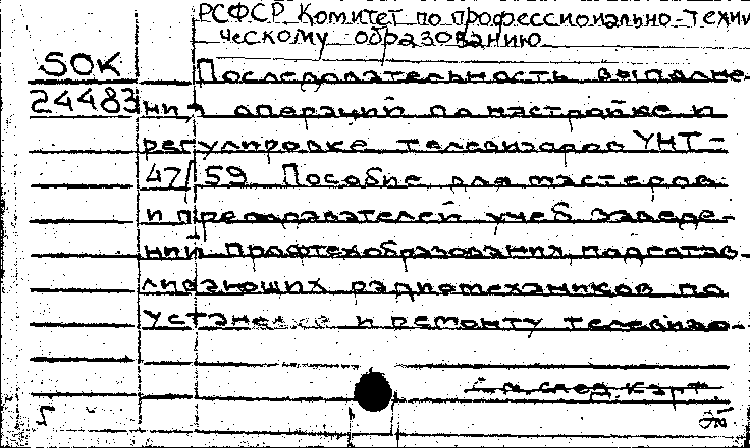 РСФСР. Комитет по профессионально-техни
ческому образованию
50К Последовательность выполне-
24483 ния операций по настройке и
регулировке телевизоров УНТ-
47/59. Пособие для мастеров
и преподавателей учеб. заведе-
ний профтехобразования, подготав-
ливающих радиотехников по
установке и ремонту телевизо-
См. след. карт.